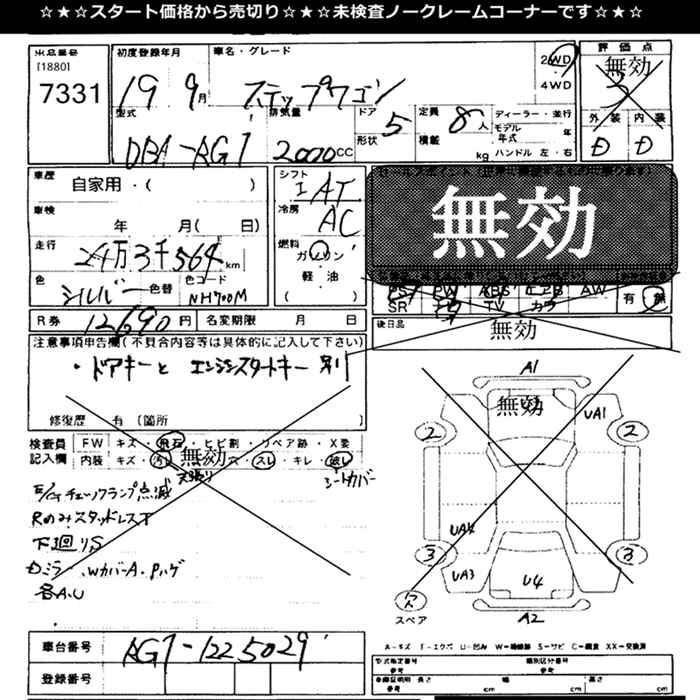 ☆★☆★スタート価格から売切り☆★☆★未検査ノークレームコーナーです☆★☆
出品番号 初度登録年月 車名・グレード 評価点
[1880]
7331 19 9月 ステップワゴン 2WD 4WD 無効 3
外装 内装
D D
型式 排気量 ドア 形状 定員 積載 ディーラー・並行
DBA-RG1 2000CC 5 8人 モデル年式 年
kg ハンドル 左・右
車歴 自家用・( ) シフト IAT
車検 年 月( 日) 冷房 AC
無効
走行 24万3千564km 燃料 ガソリン
(軽・油)
色 シルバー 色替 色コード NH700M
PS PW ABS エアB AW 有 無
SR ナビ TV カワ
R券 12,690円 名変期限 月 日 後日品 無効
注意事項申告欄(不具合内容等は具体的に記入して下さい)
・ドアキーと エンジンスタートキー 別
修復歴 有 (箇所
検査員 FW キズ・飛石・ヒビ割・リペア跡・X要
記入欄 内装 キズ・汚れ・無効・穴・スレ・キレ・破レ
シートカバー
E/Gチェックランプ点滅
Rのみスタッドレス
下廻りS
各A.U
A1
無効
UA1
2 2
UA4
3 3
UA3 U4
スペア A2
車台番号 RG1-1225029
登録番号
A-キズ U-凹み W-補修跡 S-サビ C-腐食 XX-交換済
型式指定番号 類別区分番号
参考 参考
車輌記証 長さ 幅 高さ
参考 cm cm cm